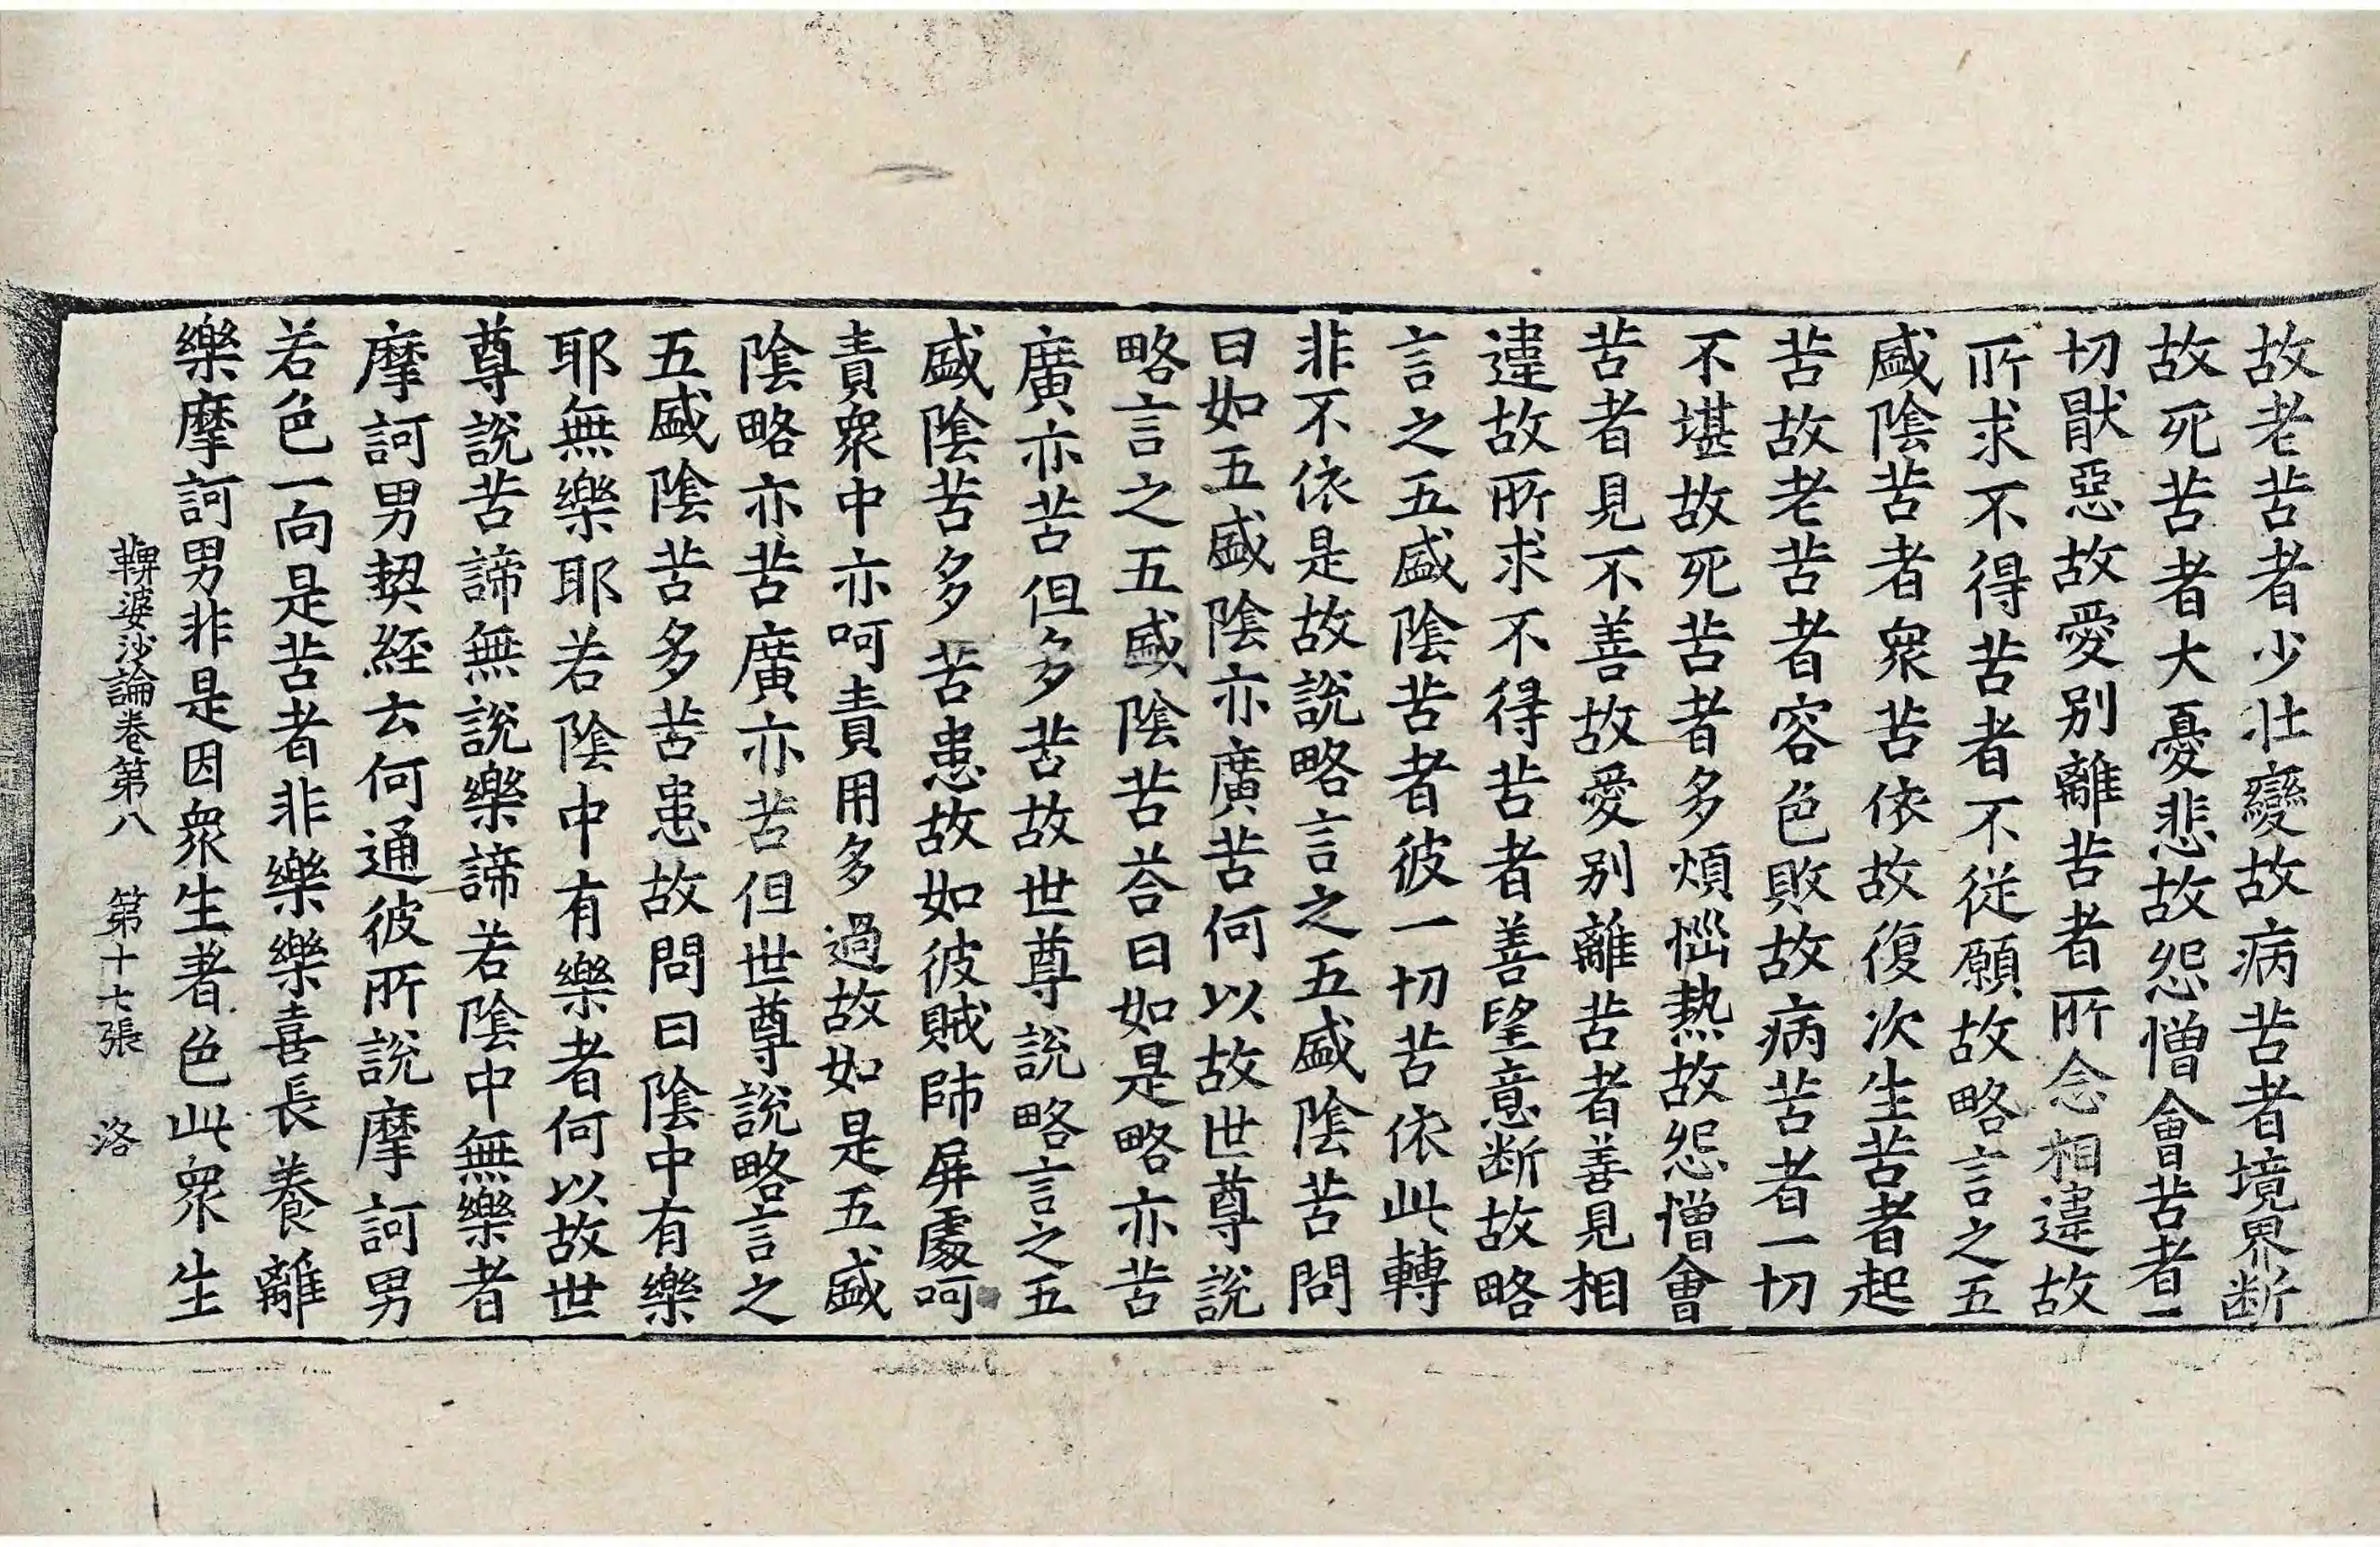 故老苦者少壯變故病苦者境界断
故死苦者大憂悲故怨憎會苦者一
切猒惡故愛別離苦者所念相違故
所求不得苦者不從願故略言之五
盛陰苦者衆苦依故復次生苦者起
苦故老苦者容色敗故病苦者一切
不堪故死苦者多煩惱熱故怨憎會
苦者見不善故愛別離苦者善見相
違故所求不得苦者善望意断故略
言之五盛陰苦者彼一切苦依此轉
非不依是故説略言之五盛陰苦問
曰如五盛陰亦廣苦何以故世尊説
略言之五盛陰苦荅曰如是略亦苦
廣亦苦但多苦故世尊説略言之五
盛陰苦多苦患故如彼賊師屏處呵
責衆中亦呵責用多過故如是五盛
陰略亦苦廣亦苦但世尊説略言之
五盛陰苦多苦患故問曰陰中有樂
耶無樂耶若陰中有樂者何以故世
尊説苦諦無説樂諦若陰中無樂者
摩訶男契經云何通彼所説摩訶男
若色一向是苦者非樂樂喜長養離
樂摩訶男非是因衆生著色此衆生
鞞婆沙論卷第八 第十七張 洛